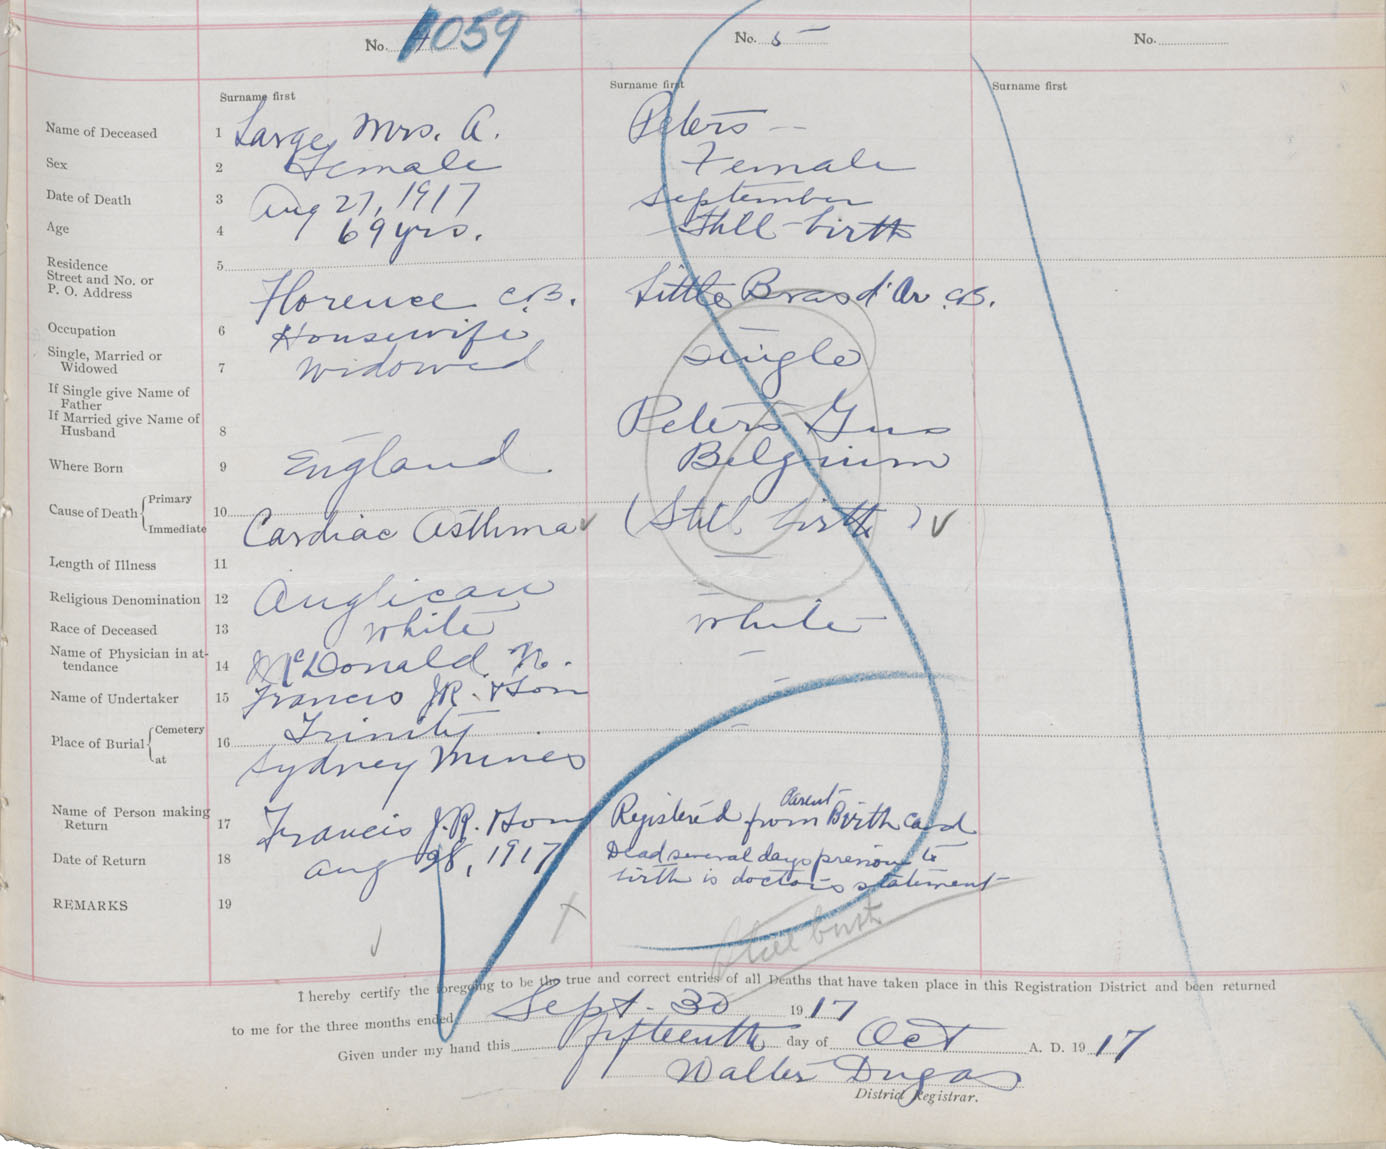 No. 1059
No. 5
No.
Surname first
Surname first
Surname first
Name of Deceased 1 Large, Mrs. A. Peters —
Sex 2 Female Female
Date of Death 3 Aug 27, 1917 September
Age 4 69 yrs. Still-birth
Residence
Street and No. or
P. O. Address
5 Florence C.B. Little Bras d'Or C.B.
Occupation 6 Housewife —
Single, Married or
Widowed
7 Widowed Single
If Single give Name of
Father
If Married give Name of
Husband
8 — Peters Gus
Where Born 9 England. Belgium
Cause of Death { Primary
Immediate
10 Cardiac Asthma ✓ (Still birth) ✓
Length of Illness 11 —
Religious Denomination 12 Anglican —
Race of Deceased 13 White White
Name of Physician in at-
tendance
14 McDonald, N. —
Name of Undertaker 15 Francis J.R. & Son —
Place of Burial { Cemetery
at
16 Trinity —
Sydney Mines
Name of Person making
Return
17 Francis J.R. & Son Registered from Parent Birth Card
Date of Return 18 Aug 28, 1917 Dead several days previous to
birth is doctors statement
REMARKS 19
Still birth
I hereby certify the foregoing to be the true and correct entries of all Deaths that have taken place in this Registration District and been returned
to me for the three months ended Sept. 30 1917
Given under my hand this fifteenth day of Oct A. D. 1917
Walter Dugas
District Registrar.